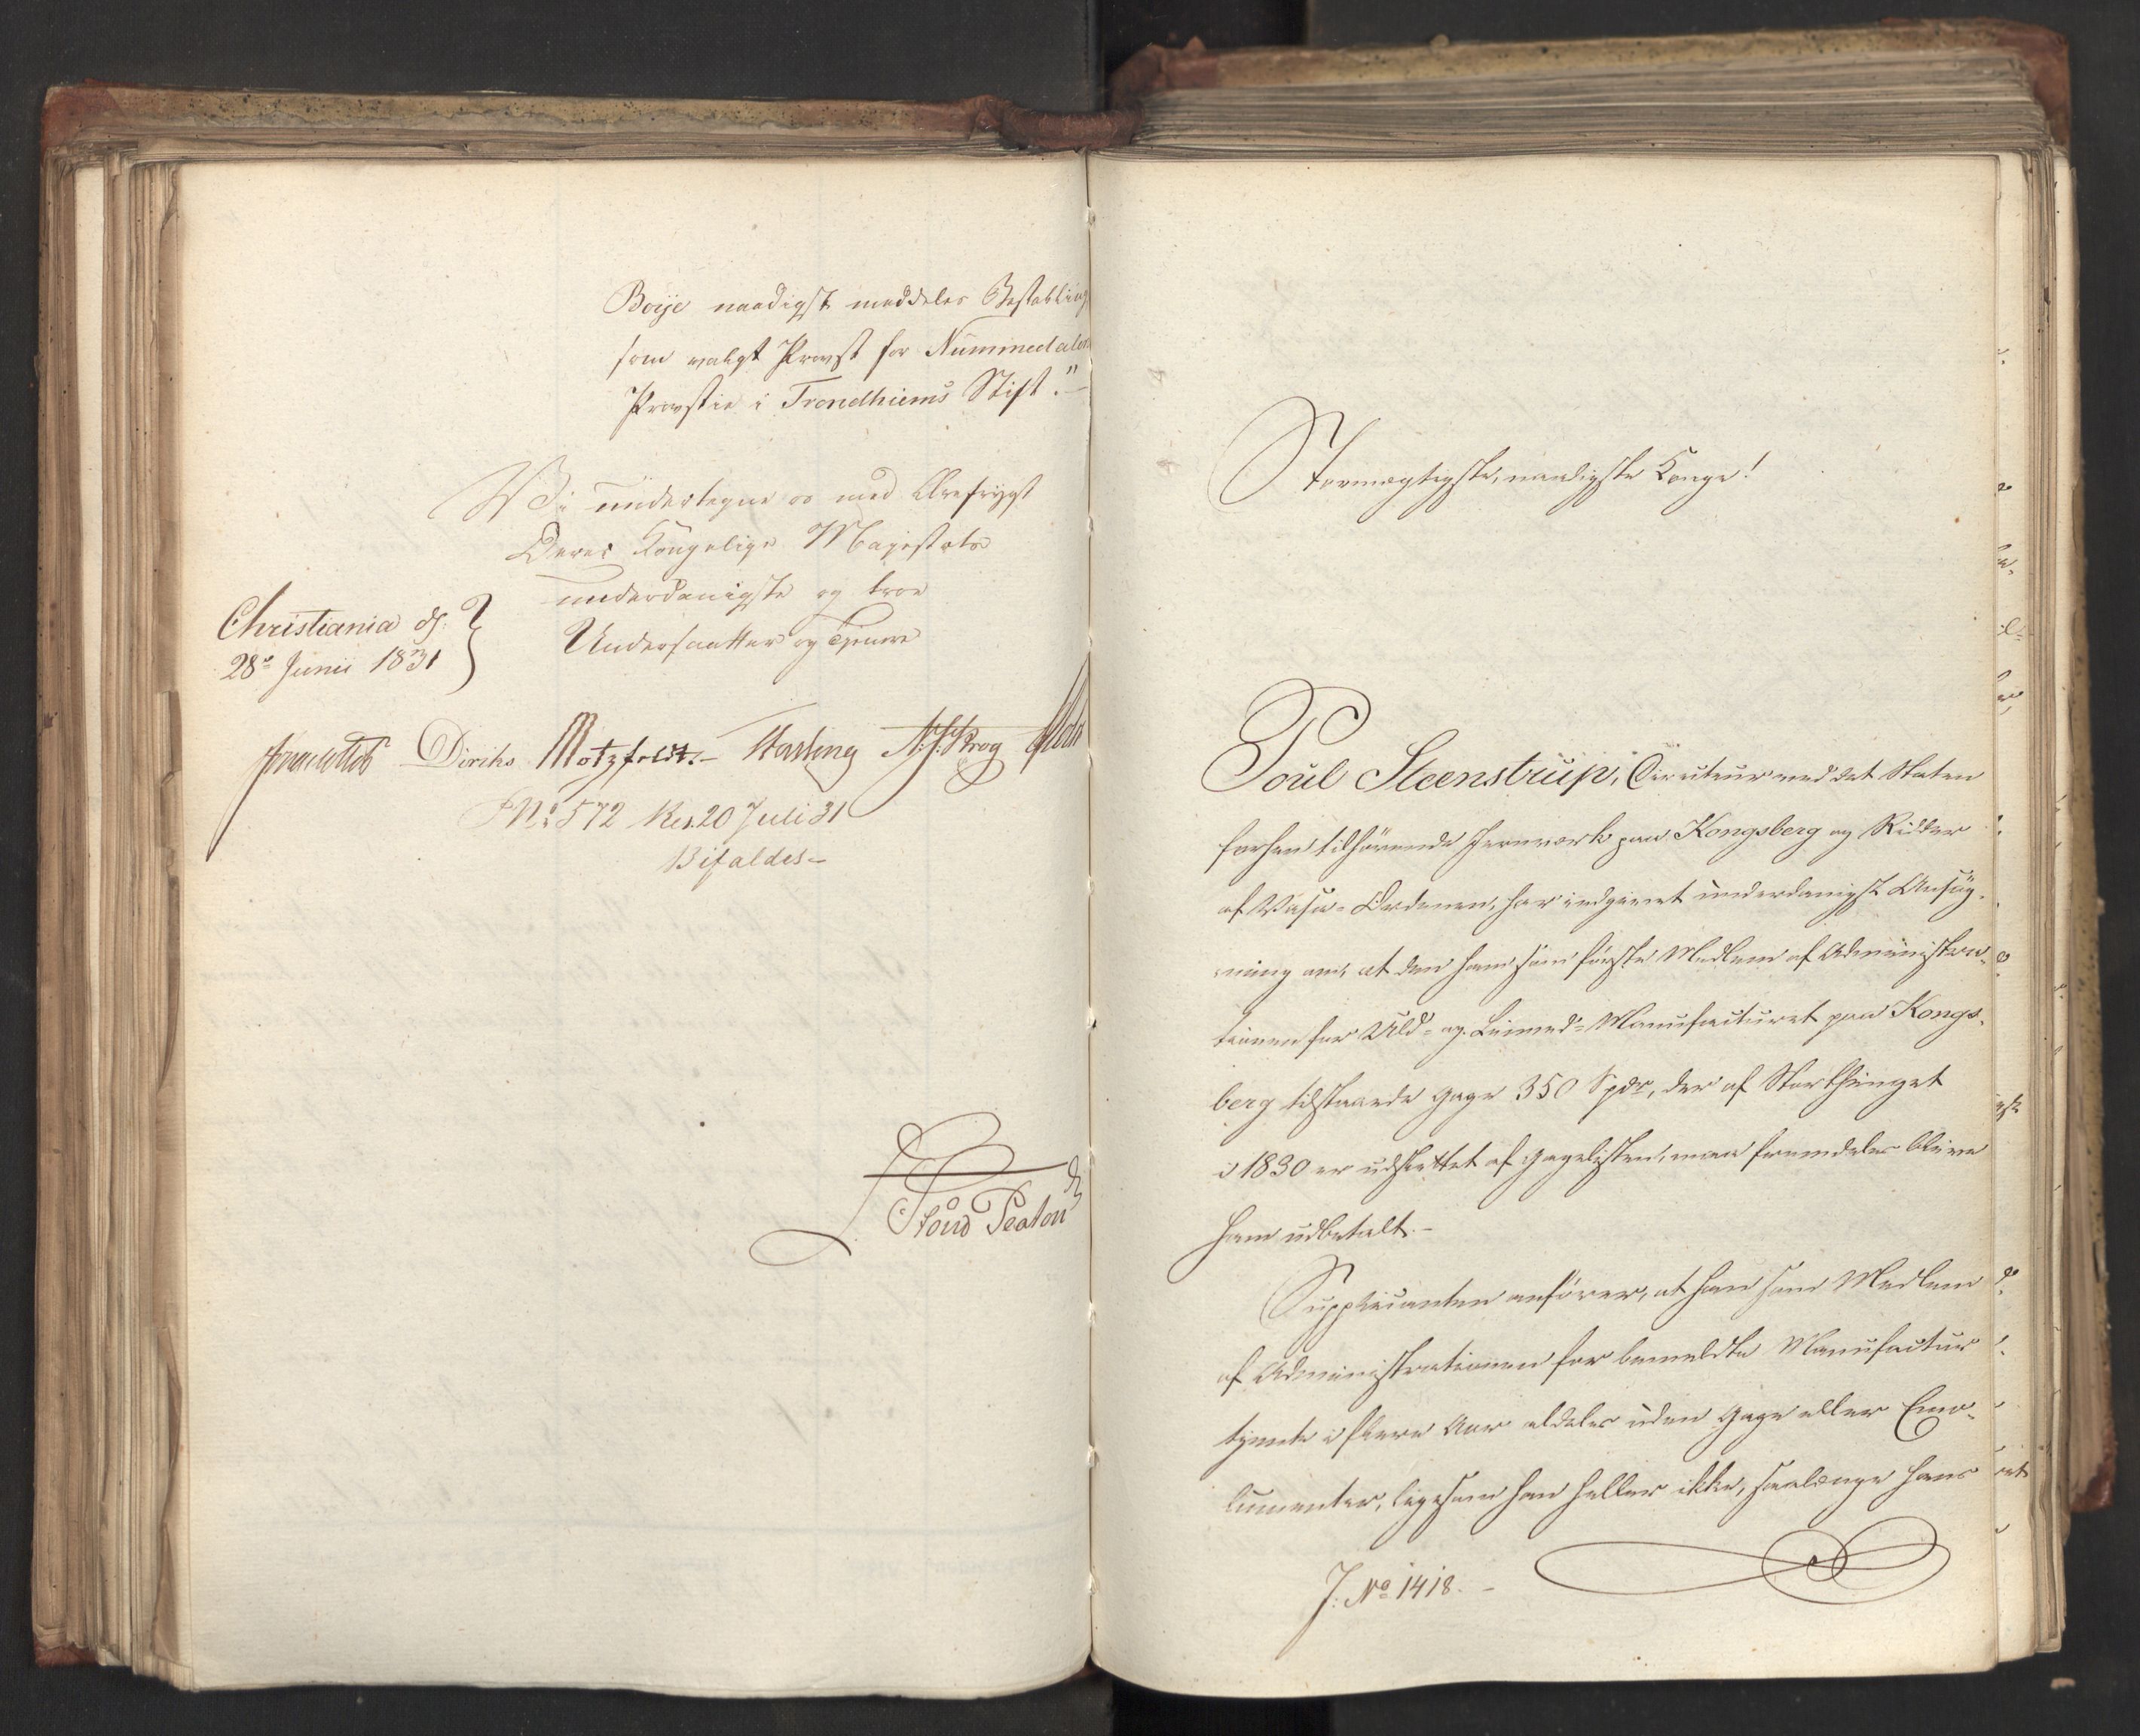 Boije naadigst meddeles Bestalling
som valgt Provst for Nummedalens
Provstie i Trondhiems Stift."-
Vi undertegne os med Ærefrygt
Deres Kongelige Majestæts
underdanigste og troe
Undersaatter og Tjenere
Christiania d:
28de Junii 1831
Diriks Motzfeldt.- Fasting N: J: Krog
No 572 Res. 20 Juli 31
Bifaldes-
Stormægtigste, naadigste Konge!
Poul Steenstrup, Directeur ved det Staten
forhen tilhørende Jernværk paa Kongsberg og Ridder
af Vasa-Ordenen, har indgivet underdanigst Ansøg-
ning om, at den ham som første Medlem af Administra-
tionen for Uld- og Linned-Manufacturet paa Kongs-
berg tilstaaede Gage 350 Spdr, der af Storthinget
i 1830 er udslettet af Gagelisten, maa fremdeles blive
ham udbetalt.-
Supplicanten anfører, at han som Medlem
af Administrationen for bemeldte Manufactur
tjente i flere Aar aldeles uden Gage eller Emo-
lumenter, ligesom han heller ikke, saalænge hans
J: No 1418.-